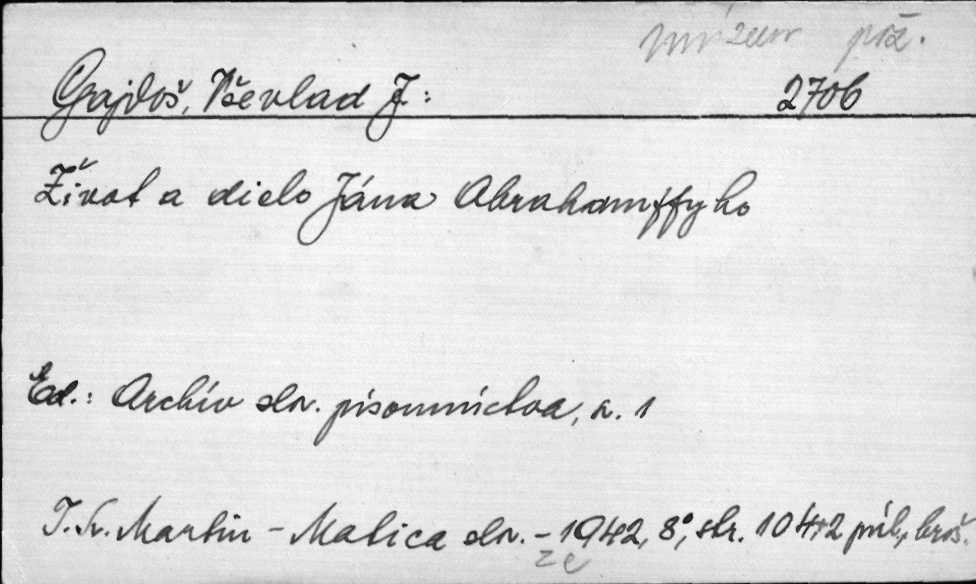 múzeum prž.
Gajdoš, Vševlad J: 2706
Život a dielo Jána Abrahamffyho
Ed.: Archív slov. písomníctva, č. 1
T. Sv. Martin - Matica slov. - 1942, 8°, str. 104+2 príl., brož.